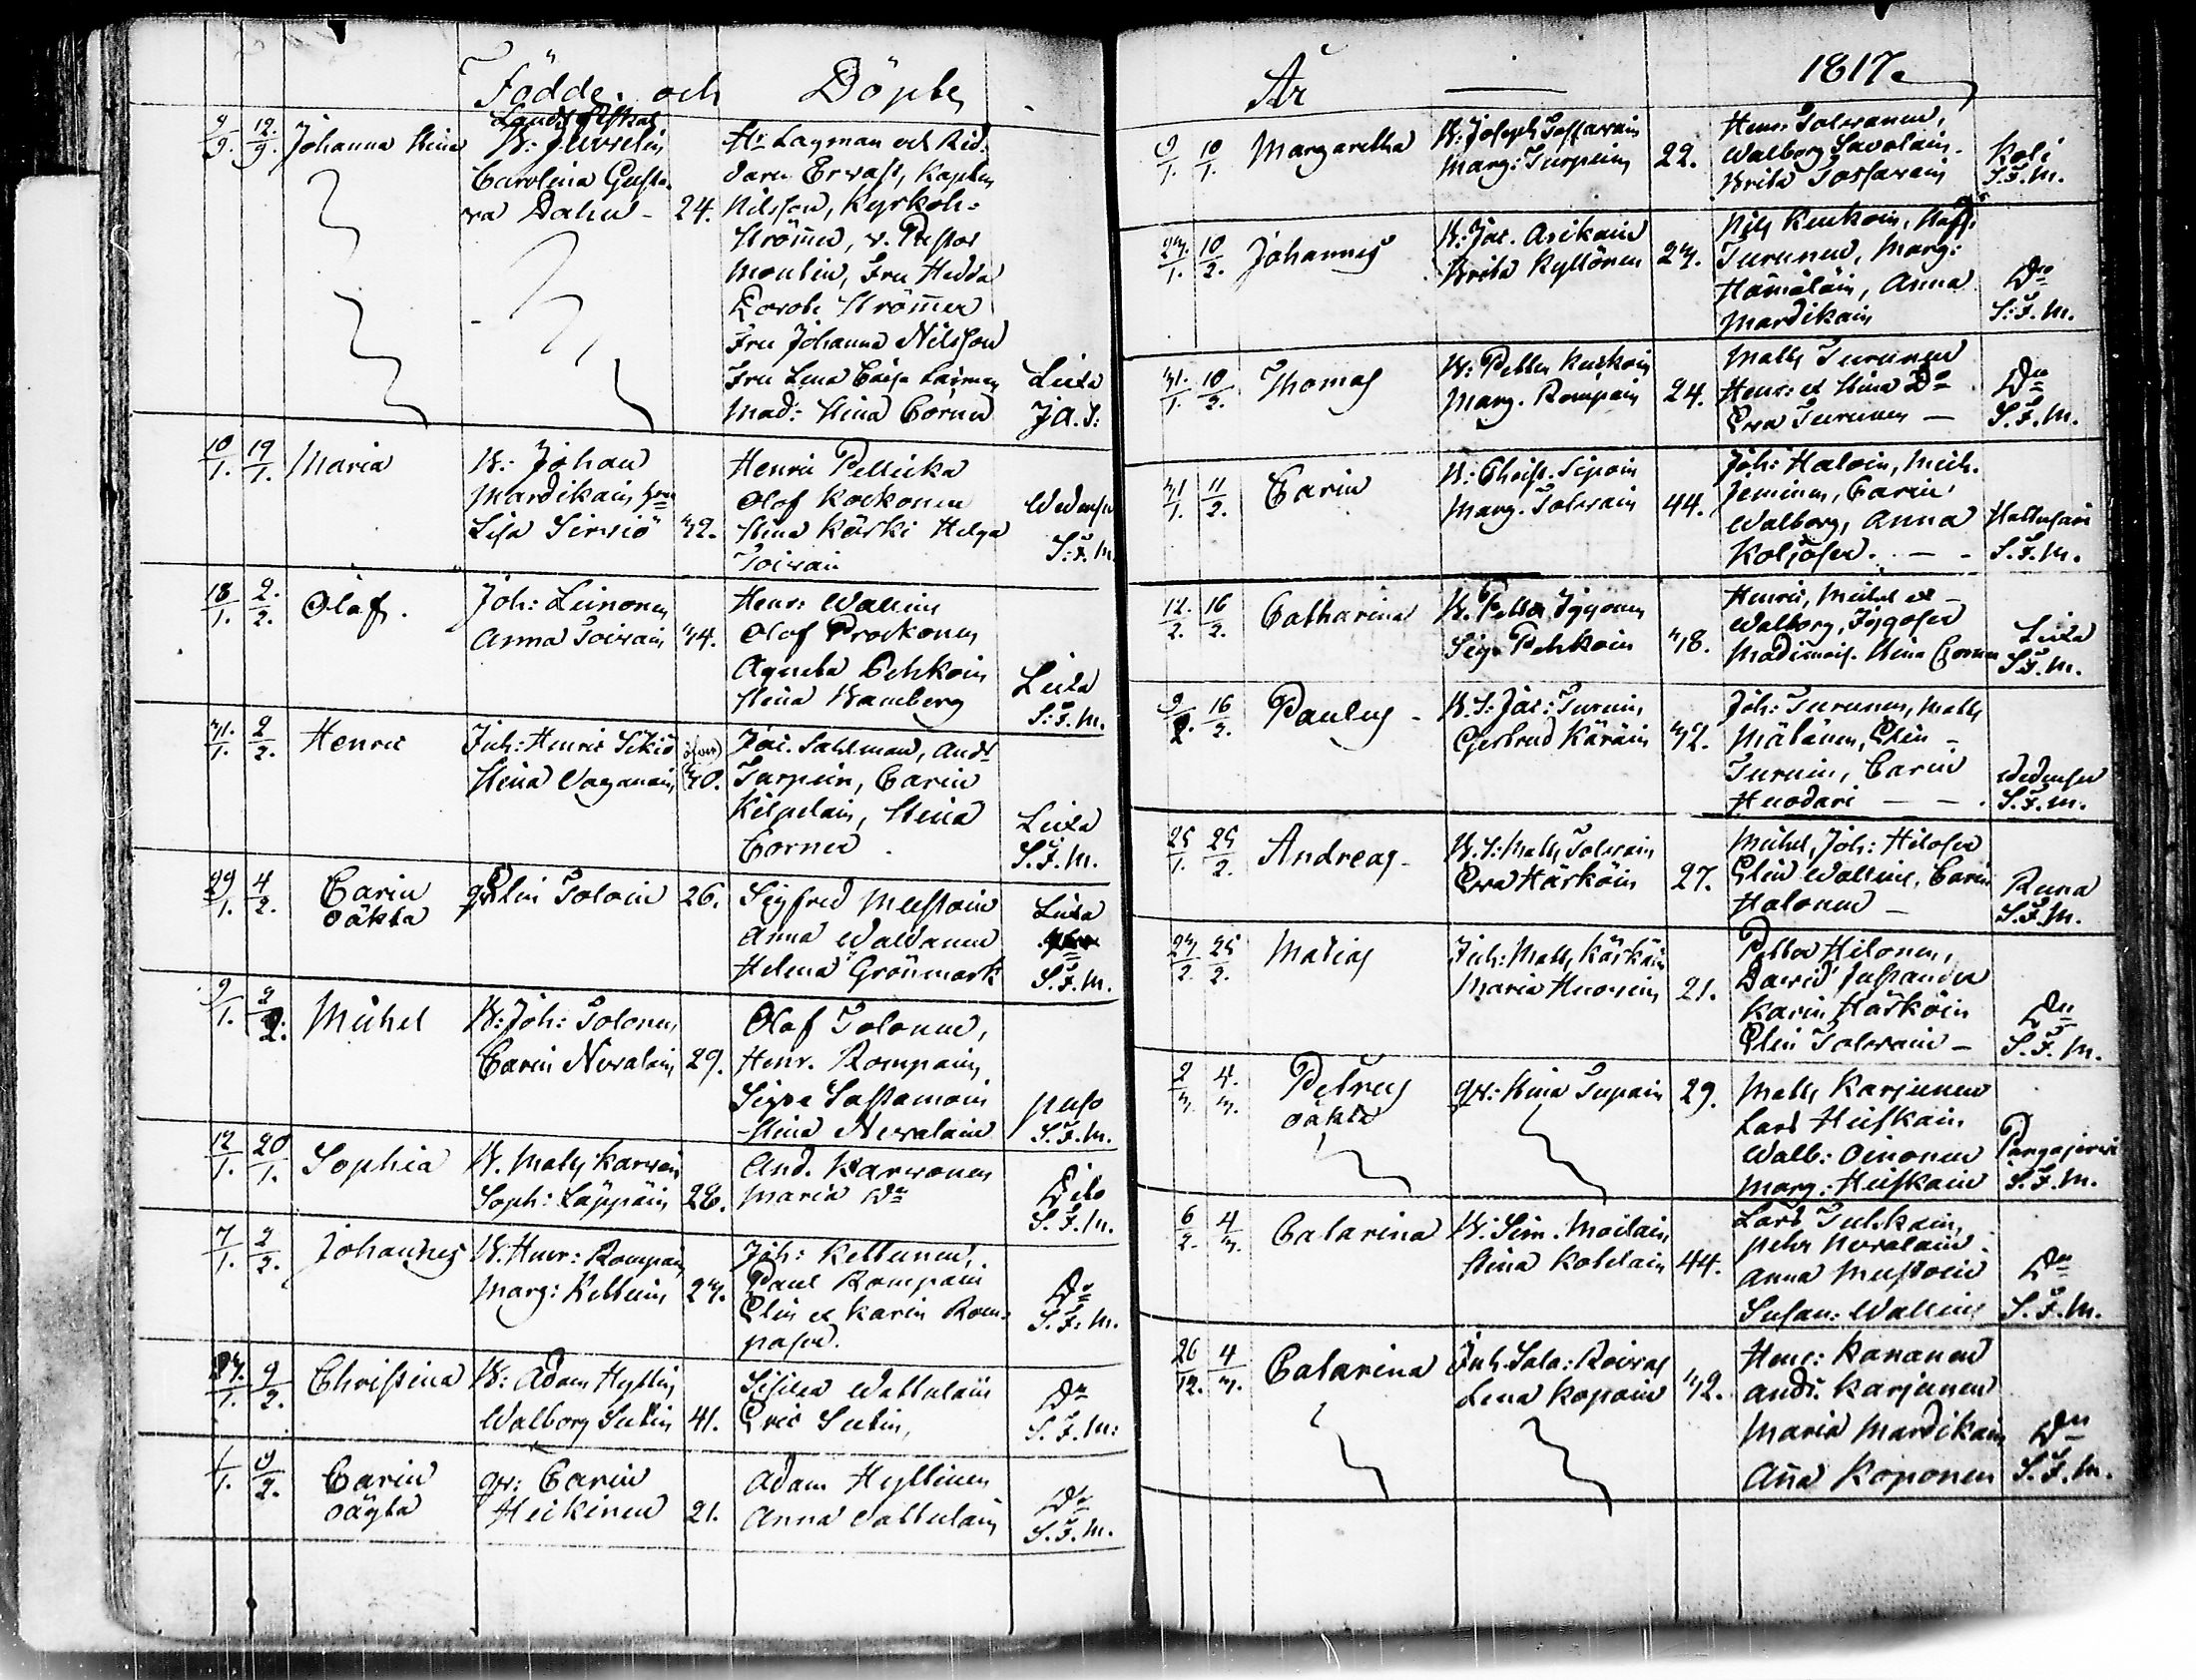 Födde och Döpte
Landtfiskal
9/9. 12./9. Johanna Stina
B: J. Juvelin
Carolina Gusta
va Dahn - 24.
Hr Lagman och Rid
dare Ervast, Kapten
Nilsson, Kyrkoh:
Strömer, v. Pastor
Montin, Fru Hedda
Dorote Strömer
Fru Johanna Nilsson
Fru Lena Caisa
Mad: Stina Corner
Lixa
10/1. 19/1. Maria
B: Johan
Mardikain
Lisa Sirviö 32.
Henric Pellicka
Olof Kockonen
Stina Käski Helga
Toivain
S:F.M.
18/1. 2./2. Olof.
Joh: Leinonen
Anna Toivain 34.
Henr: Wallius
Olof Prockonen
Agneta Pehkoin
Stina Bamberg
Lixa
S:F.M.
31./1. 2/2. Henric
Inh: Henric Sikiö
Stina Vaganain 30.
Jac. Sahlman, And:
Turpein, Carin
Kilpelain, Stina
Corner
Lixa
S.F.M.
29/1. 4/2. Carin
oäkta
qv: Elin Toloin 26.
Sigfred Mustoin
Anna Waldanen
Helena Grönmark
Lixa
S.F.M.
9/1. 2/2. Michel
B: Joh: Tolonen
Carin Nevalain 29.
Olof Tolonen,
Henr. Rompain
Sigre Sastamoin
Stina Nevalain
S.F.M.
12/1. 20/1. Sophia
B. Matts Karvain
Soph: Läppäin 28.
And. Karvonen
Maria Do
Dito
S.F.M.
7/1. 2/2. Johannes
B. Henr: Rompain
Marg: Kettuin 23.
Joh: Kettunen,
Paul Rompain
Elin et Karin Rom-
pain.
Do
S.F.M.
9/2. Christina
B: Adam Hyttin
Walborg Sutin 41.
Wattulain
Eric Sutin,
Do
S.F.M:
1/1. 9/2. Carin
oägta
qv: Carin
Heikinen 21.
Adam Hyttinen
Anna Vattulain
Do
S.F.M.
År — 1817.
9/1. 10/1. Margaretha
B: Joseph Tossavain
Marg: Turpein 22.
Henr: Tolvanen,
Walborg Savolain.
Brita Tossavain
Koli
S.F.M.
27./1. 10/2. Johannes
B: Jac. Asikain
Brita Kyllönen 23.
Nils Kuckoin,
Turunen, Marg:
Hämäläin, Anna
Mardikain
Do
S:F.M.
31./1. 10/2. Thomas
B: Petter Kuckoin
Marg. Rompain 24.
Matts Turunen
Henr: et Stina Do
Eva Turunen —
Do
S.F.M.
31/1. 11/2. Carin
B: Christ. Sipoin
Marg. Tolvain 44.
Joh: Haloin, Mich.
Jeminen, Carin
Walborg, Anna
S.F.M.
12./2. 16/2. Catharina
B. Petter Jygonen
Sig. Pehkoin 38.
Henric, Michel et —
Walborg,
Madimois. Stina Corner
Lixa
S.F.M.
9/2. 16/2. Paulus -
B.S: Jac: Turuin
Gertrud Käräin 32.
Joh: Turunen, Matts
Mälänen, Elin —
Turuin, Carin
Huodari — — .
S.F.M.
25/1. 25/2. Andreas -
B.S: Matts Tolvain
Eva Härköin 27.
Michel, Joh:
Elin Wallius, Carin
Halonen —
Runa
S.F.M.
23/2. 25/2. Matias
Inh: Matts
Maria Huovin 21.
Petter Hilonen,
David Justander
Karin Härköin
Elin Tolvain —
Do
S.F.M.
2/3. 4./3. Petrus
oäkta
qv: Stina Tupain 29.
Matts Karjunen
Lars Huiskain
Walb: Oinonen
Marg: Huiskain
Pangajervi
S.F.M.
6/2. 4/3. Catarina
B: Sim. Moilain
Stina Kotilain 44.
Lars Tuhkain
Pehr Nevalain
Anna Mustoin
Susan: Wallius
Do
S.F.M.
26/12. 4/3. Catarina
Inh. Salo: Roivas
Lena Kopoin 32.
Henr: Kananen
And: Karjunen
Maria Mardikain
Ana Koponen
Do
S.F.M.